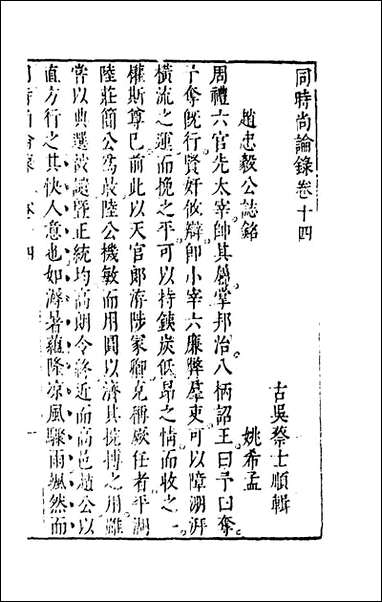 同時尚論錄卷十四
古吳蔡士順輯
趙忠毅公誌銘
姚希孟
周禮六官先太宰帥其屬掌邦治八柄詔王曰予曰奪
予奪旣行賢奸攸辯卽小宰六廉弊羣吏可以障溯湃
橫流之運而挽之平可以持鐵炭低昂之情而收之一
權斯尊已前此以天官郞濟陟冢卿克稱厥任者平湖
陸莊簡公爲最陸公機敏而用圓以濟其挽搏之用雖
嘗以典選被譴暨正統均高朗令終近而高邑趙公以
直方行之其快人意也如溽暑蘊隆凉風驟雨颯然而